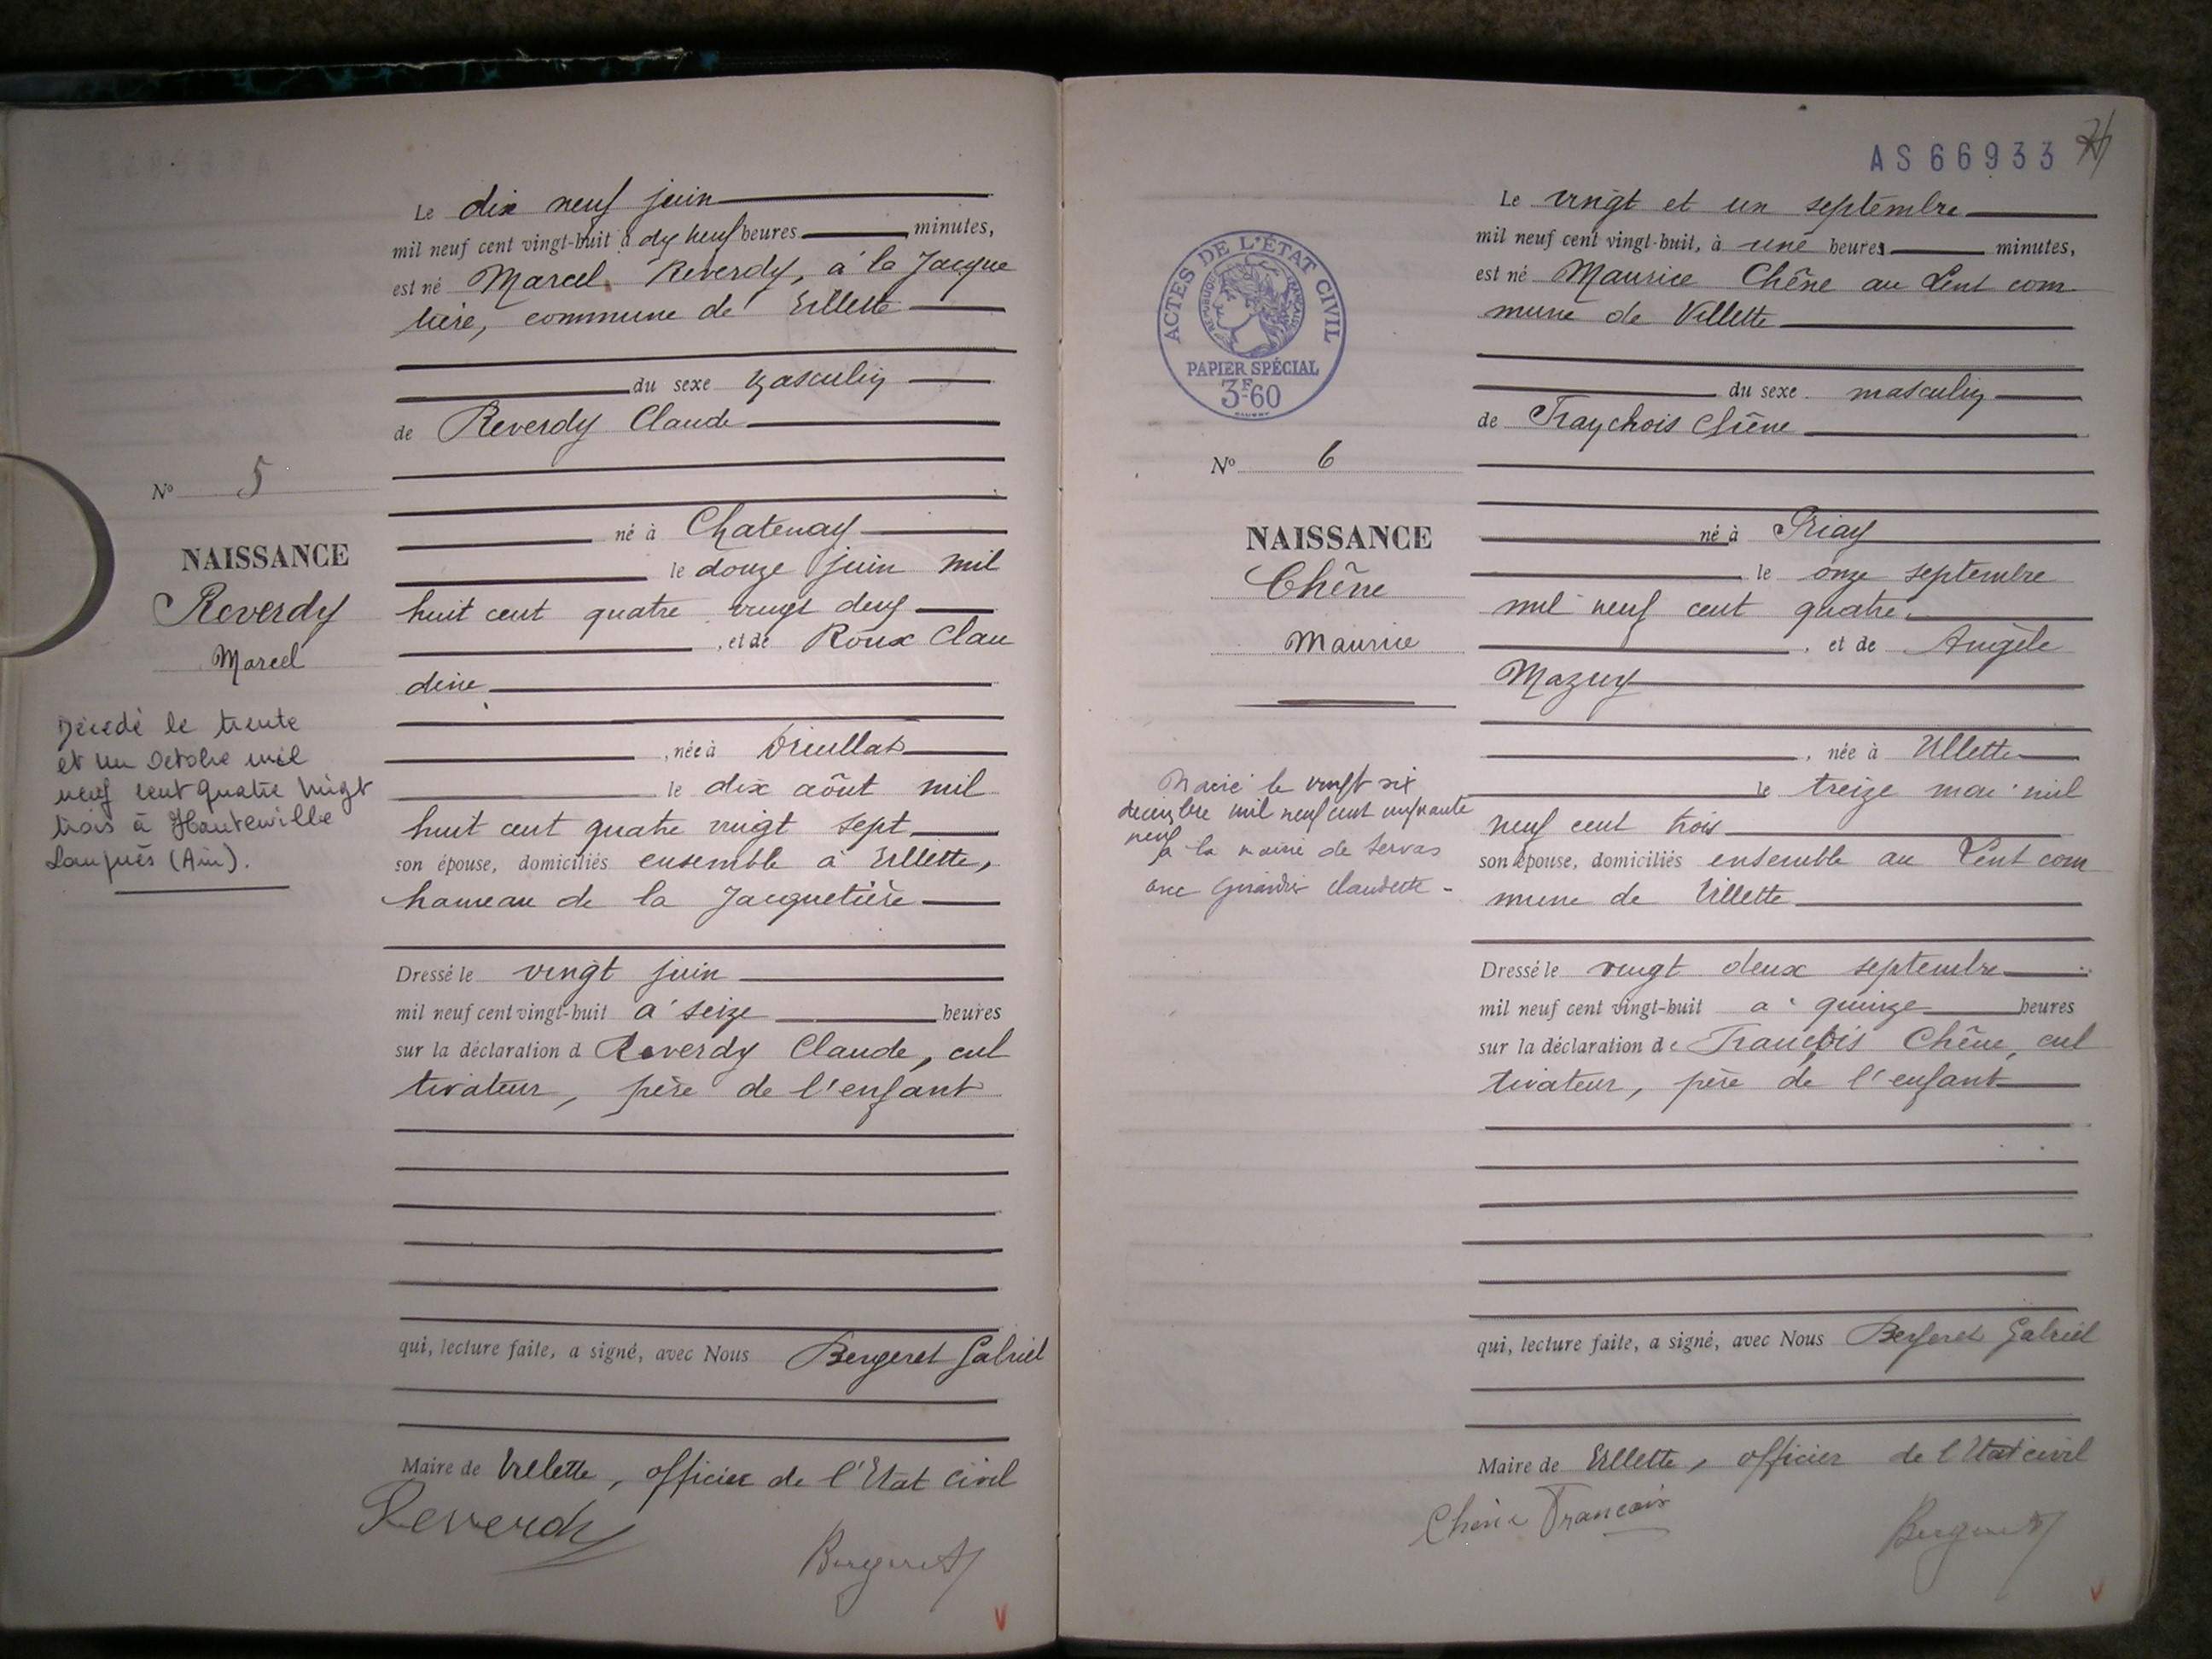 Le dix neuf juin
mil neuf cent vingt-huit à dix neuf heures minutes,
est né Marcel Reverdy, à la Jacque
tière, commune de Villette
du sexe masculin
de Reverdy Claude
né à Chatenay
le douze juin mil
huit cent quatre vingt deux
, et de Roux Clau
dine
, née à Druillat
le dix août mil
huit cent quatre vingt sept
son épouse, domiciliés ensemble à Villette,
hameau de la Jacquetière
Dressé le vingt juin
mil neuf cent vingt-huit à seize heures
sur la déclaration d Reverdy Claude, cul
tivateur, père de l'enfant
qui, lecture faite, a signé, avec Nous Bergeret Gabriel
Maire de Villette, officier de l'Etat Civil
Reverdy
Bergeret
V
N° 5
NAISSANCE
Reverdy
Marcel
Décédé le trente
et un octobre mil
neuf cent quatre vingt
trois à Hauteville
Lompnès (Ain).
AS66933
ACTES DE L'ÉTAT CIVIL
RÉPUBLIQUE FRANÇAISE
PAPIER SPÉCIAL
3F60
N° 6
NAISSANCE
Chêne
Maurice
Marié le vingt six
decembre mil neuf cent cinquante
neuf
à la mairie de Servas
avec Claudette -
Le vingt et un septembre
mil neuf cent vingt-huit, à une heures minutes,
est né Maurice Chêne au Lent com
mune de Villette
du sexe masculin
de François Chêne
né à Priay
le onze septembre
mil neuf cent quatre
, et de Angèle
Mazuy
, née à Villette
le treize mai mil
neuf cent trois
son épouse, domiciliés ensemble au Lent com
mune de Villette
Dressé le vingt deux septembre
mil neuf cent vingt-huit à quinze heures
sur la déclaration de François Chêne, cul
tivateur, père de l'enfant
qui, lecture faite, a signé, avec Nous Bergeret Gabriel
Maire de Villette, officier de l'Etat civil
Chêne François
Bergeret
V